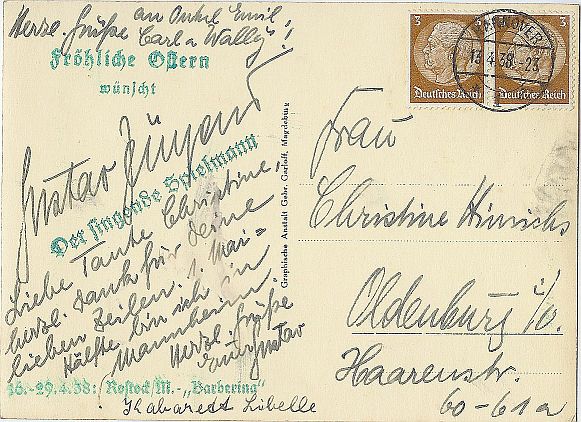 Herzl. Grüße an Onkel Emil,
Carl u Wally!
Fröhliche Ostern
wünscht
Gustav Jürgens
Der singende Spielmann
Liebe Tante Christine,
herzl. Dank für Deine
lieben Zeilen. 1. Mai-
Hälfte bin ich in
Mannheim
Herzl. Grüße
Euer Gustav
16.-29.4.38: Rostock/M.-„Barberina"
Kabarett Libelle
Graphische Anstalt Gebr. Garloff, Magdeburg
3
3
Deutsches Reich
Deutsches Reich
HANNOVER
13.4.38.-23
Frau
Christine Hinrichs
Oldenburg i/O.
Haarenstr.
60-61a